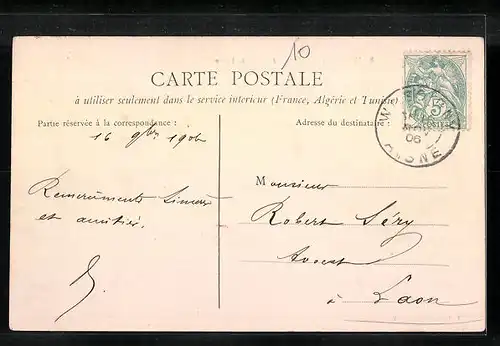 10
CARTE POSTALE
à utiliser seulement dans le service intérieur (France, Algérie et Tunisie)
Partie réservée à la correspondance :
Adresse du destinataire
16 9bre 1906
NOV
06
AISNE
Remerciements sincères
et amitiés.
Monsieur
Robert Séry
Avocat
à Laon